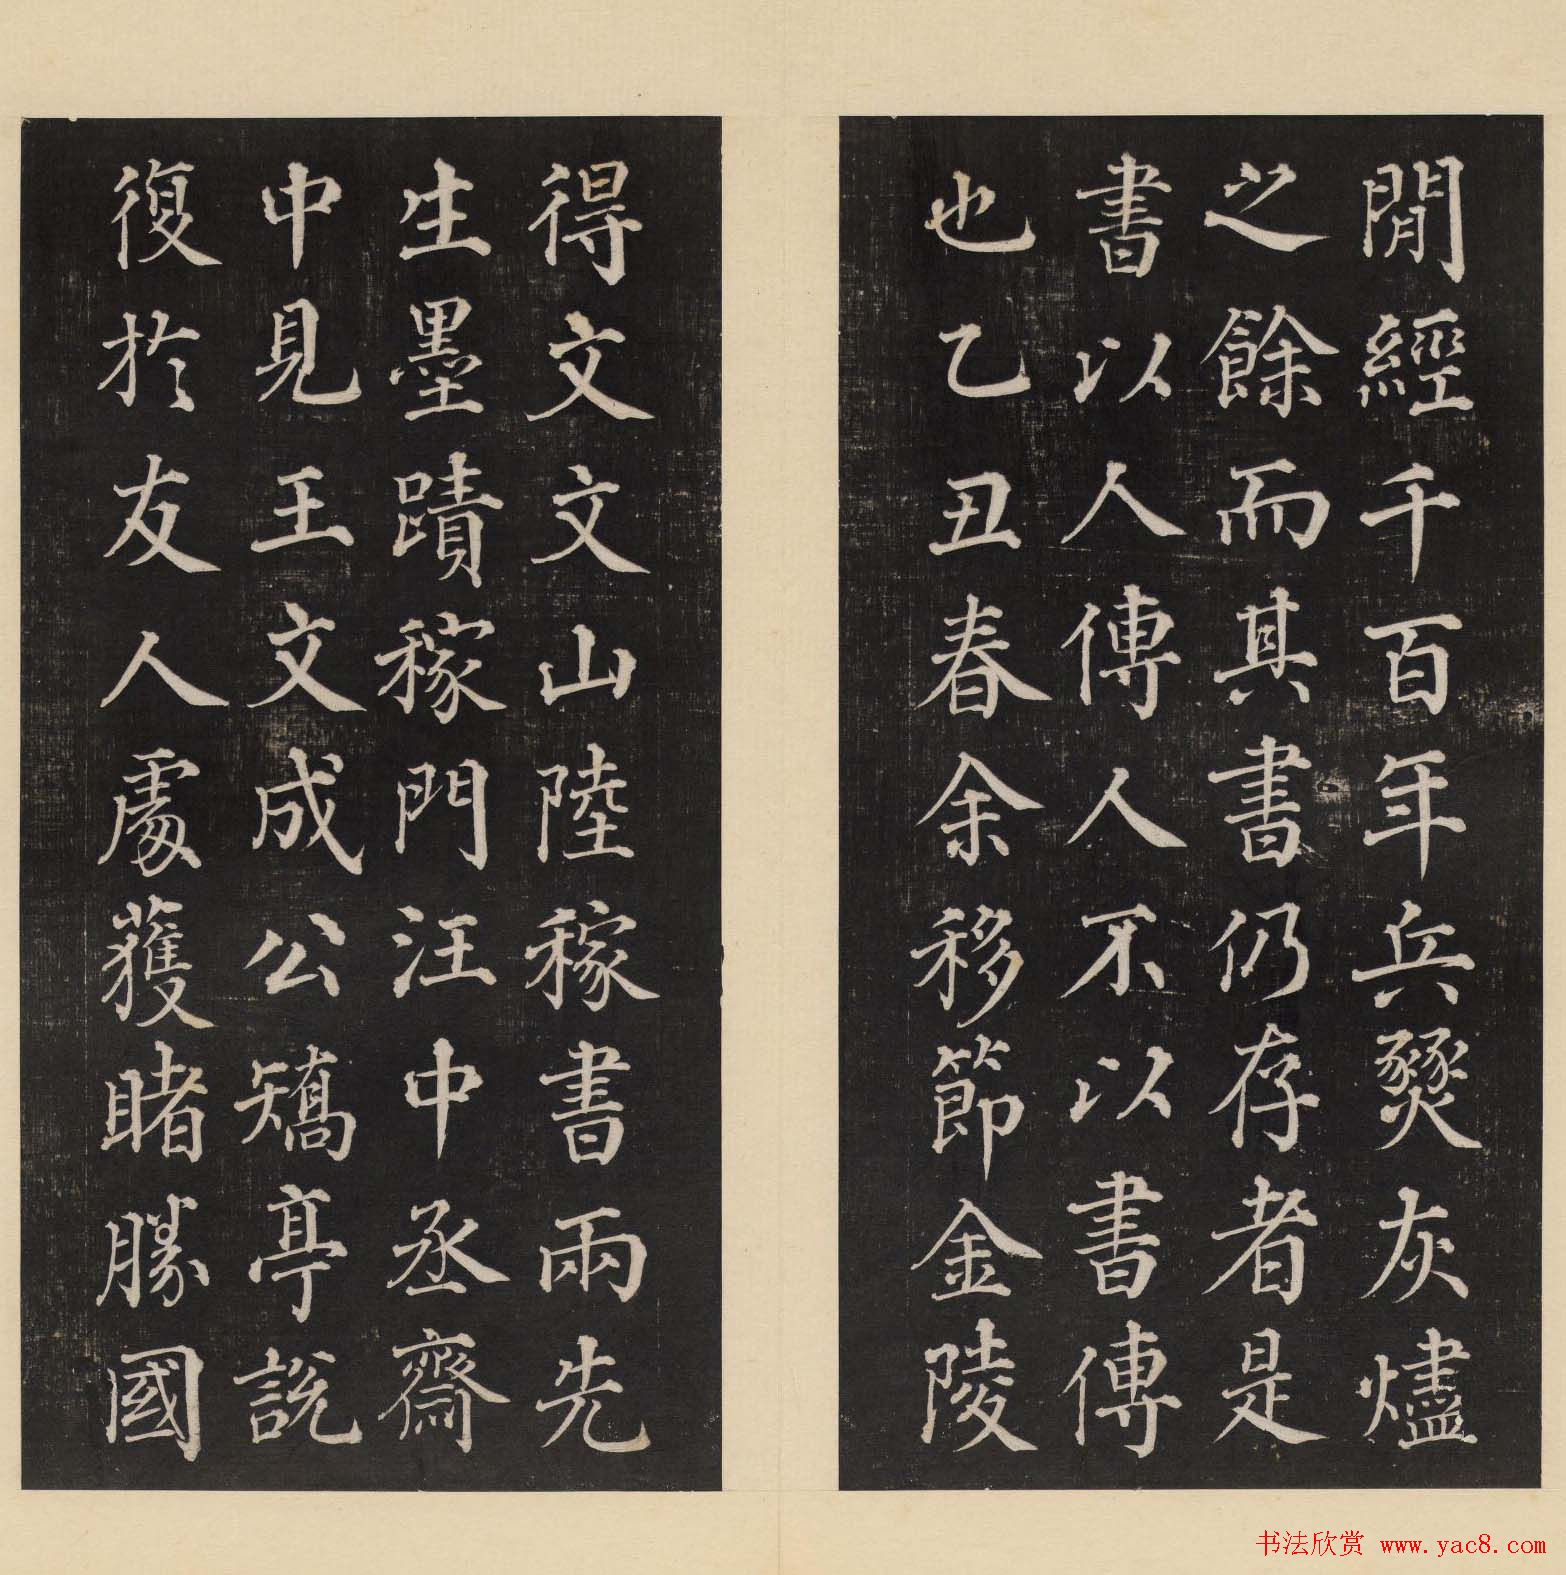 閒經千百年兵燹灰燼
之餘而其書仍存者是
書以人傳人不以書傳
也乙丑春余移節金陵
得文文山陸稼書兩先
生墨蹟稼門汪中丞齋
中見王文成公矯亭說
復於友人處獲睹勝國
书法欣赏 www.yac8.com